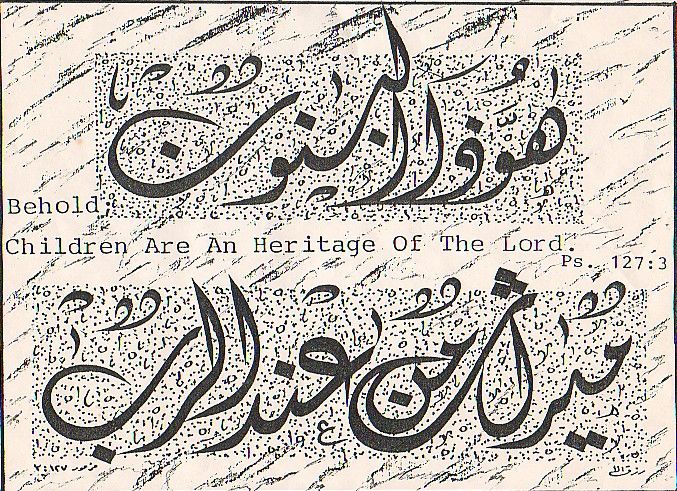 هوذا البنون
Behold,
Children Are An Heritage Of The Lord.
Ps. 127:3
ميراث من عند الرب
مزمور ٣:١٢٧